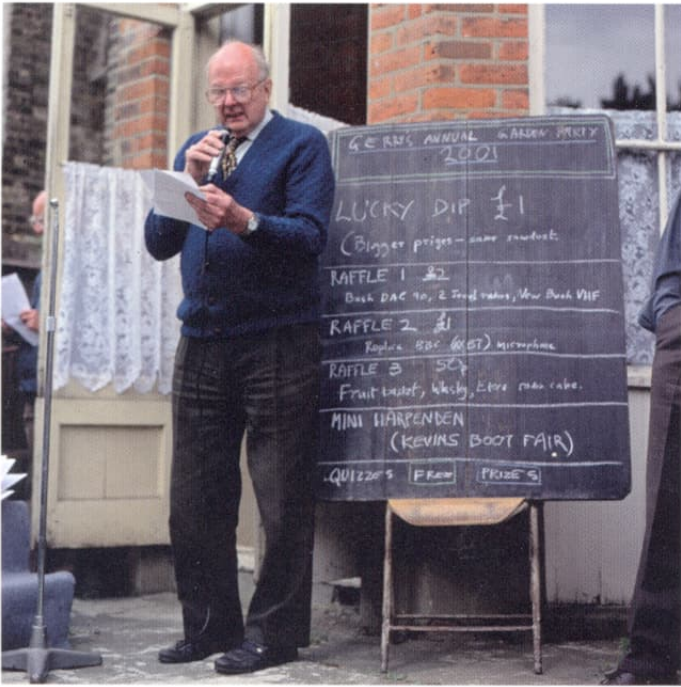 GERRYS ANNUAL GARDEN PARTY
2001
LUCKY DIP £1
(Bigger prizes – same sawdust.
RAFFLE 1 £2
Bush DAC 90, 2 radios, Bush VHF
RAFFLE 2 £1
Replica BBC microphone
RAFFLE 3 50p
Fruit basket, Whisky, cake.
MINI HARPENDEN
(KEVINS BOOT FAIR)
QUIZZES FREE PRIZES